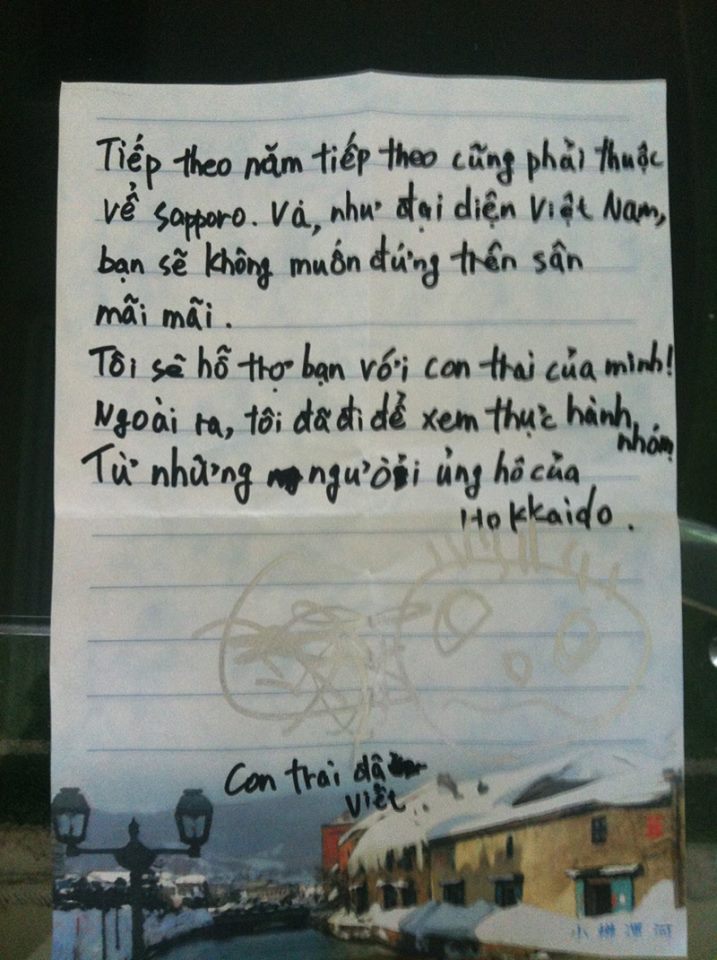 Tiếp theo năm tiếp theo cũng phải thuộc
về sapporo. Và, như đại diện Việt Nam,
bạn sẽ không muốn đứng trên sân
mãi mãi.
Tôi sẽ hỗ trợ bạn với con trai của mình!
Ngoài ra, tôi đã đi để xem thực hành
nhóm
Từ những người ủng hô của
Hokkaido.
Con trai đã
viết
小樽運河